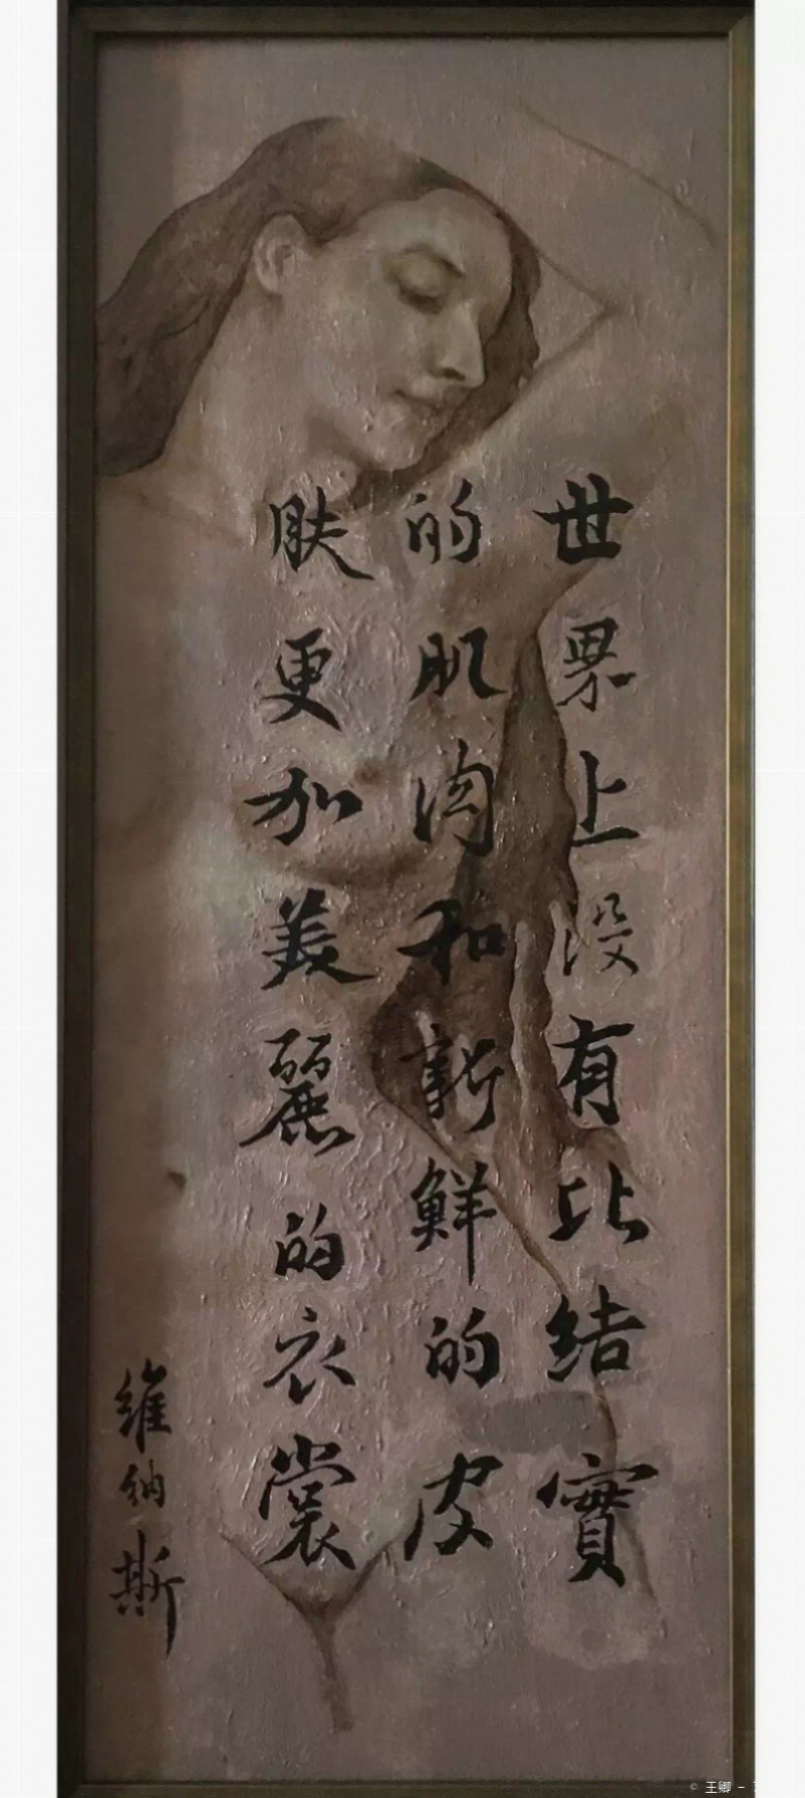 世界上没有比结實
的肌肉和新鮮的皮
肤更加美麗的衣裳
維纳斯
© 王卿 -